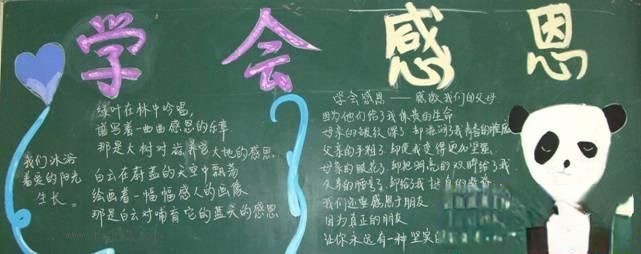 学会感恩
我们沐浴
着爱的阳光
生长。
绿叶在林中吟唱,
谱写着一曲曲感恩的乐章
那是大树对滋养它大地的感恩.
白云在蔚蓝的天空中飘荡
绘画着一幅幅感人的画像
那是白云对哺育它的蓝天的感恩
学会感恩——感激我们的父母
因为他们给了我宝贵的生命
母亲的
父亲的手粗了 却使我变得更加坚强
母亲的眼花了 却把明亮的双眸给了我
父亲的 却给了我
我们还要感恩于朋友
因为真正的朋友
让你永远有一种坚实的